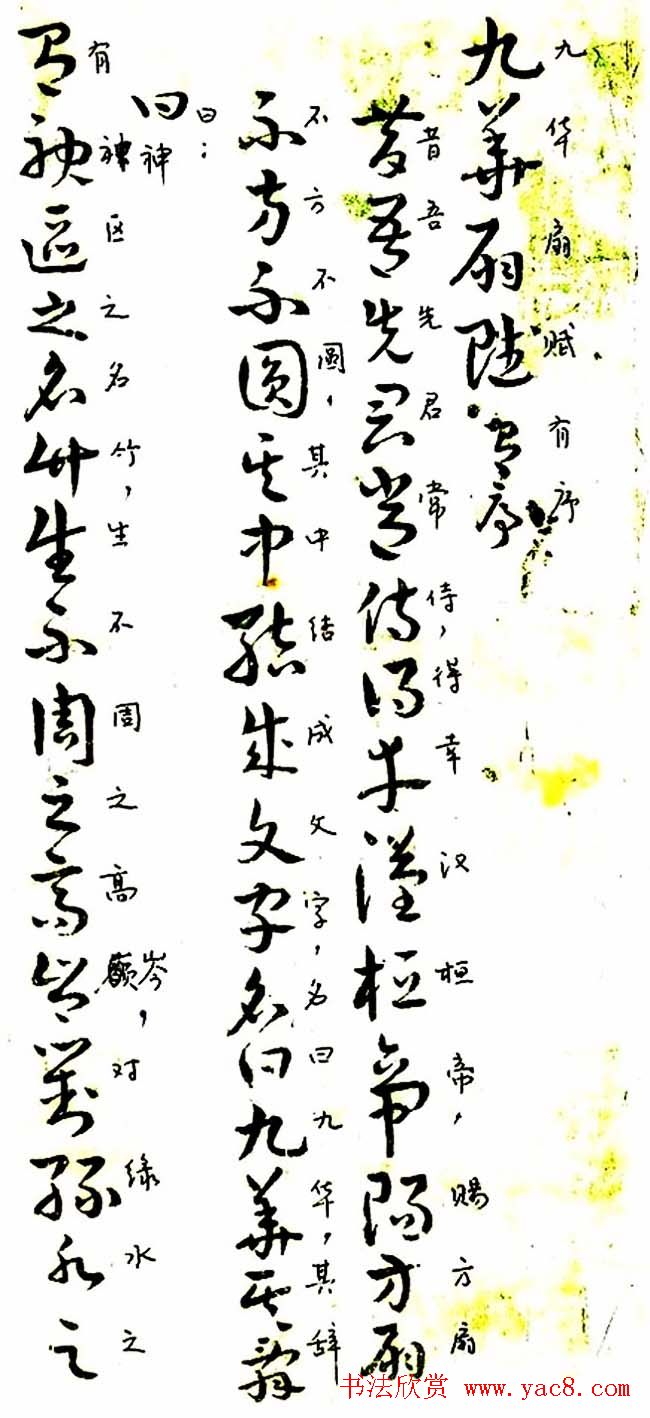 九華扇賦有序
九华扇赋有序
昔吾先君常侍得幸漢桓帝賜方扇
昔吾先君常侍，得幸汉桓帝，赐方扇
不方不圓其中結成文字名曰九華其辭
不方不圆，其中结成文字，名曰九华，其辞
曰
曰：神
有神區之名竹生不周之高岑對綠水之
有神区之名竹，生不周之高巅岑，对绿水之
书法欣赏 www.yac8.com